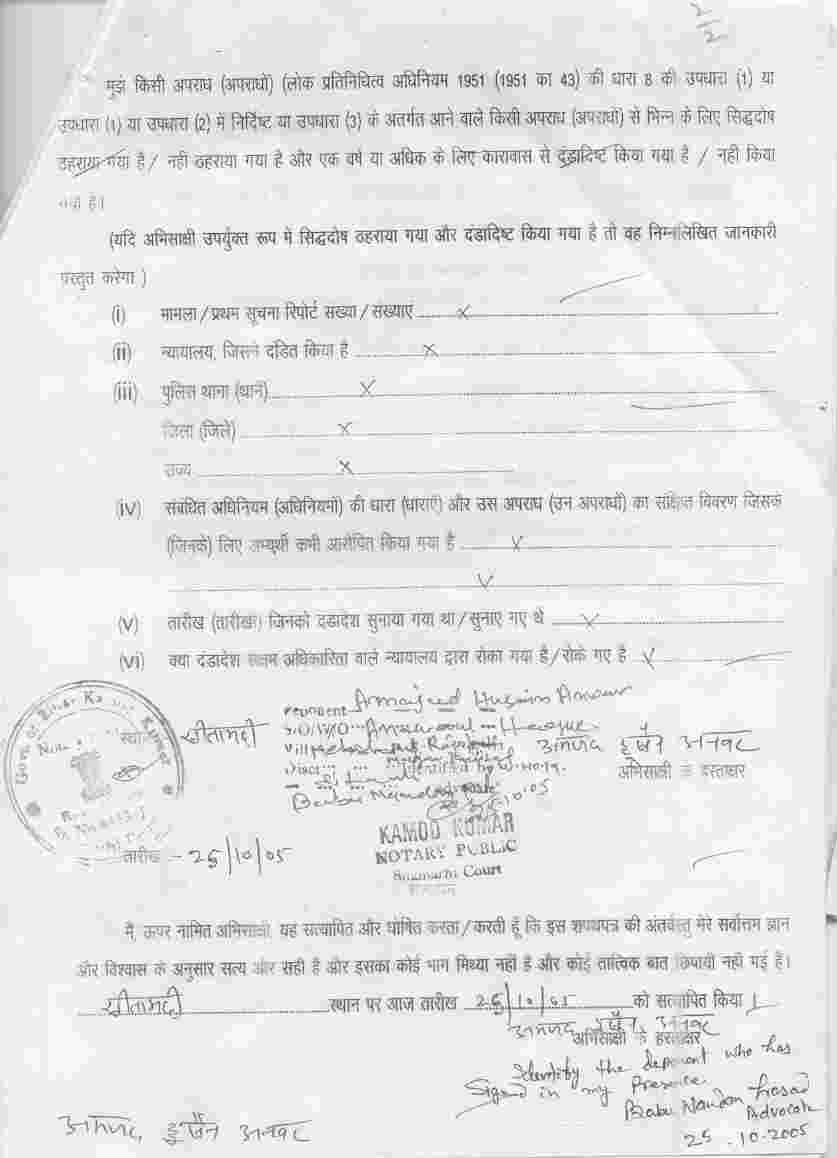 2/2
मुझे किसी अपराध (अपराधों) (लोक प्रतिनिधित्व अधिनियम 1951 (1951 का 43) की धारा 8 की उपधारा (1) या
उपधारा (1) या उपधारा (2) में निर्दिष्ट या उपधारा (3) के अतर्गत आने वाले किसी अपराध (अपराधों) से भिन्न के लिए सिद्धदोष
ठहराया गया है / नही ठहराया गया है और एक वर्ष या अधिक के लिए कारावास से दंडादिष्ट किया गया है / नही किया
गया है।
(यदि अभिसाक्षी उपर्युक्त रूप में सिद्धदोष ठहराया गया और दंडादिष्ट किया गया है तो वह निम्नलिखित जानकारी
प्रस्तुत करेगा )
(i) मामला / प्रथम सूचना रिपोर्ट संख्या / संख्याएं x
(ii) न्यायालय, जिसने दंडित किया है x
(iii) पुलिस थाना (थाने) x
जिला (जिले) x
राज्य x
(iv) संबंधित अधिनियम (अधिनियमों) की धारा (धाराएं) और उस अपराध (उन अपराधों) का संक्षिप्त विवरण जिसके
(जिनके) लिए अभ्यर्थी कभी आरोपित किया गया है x
(v) तारीख (तारीखों) जिनको दंडादेश सुनाया गया था / सुनाए गए थे x
(vi) क्या दंडादेश सक्षम अधिकारिता वाले न्यायालय द्वारा रोका गया है / रोके गए है
Husain Anwar
स्थान सीतामढ़ी
अभिसाक्षी के हस्ताक्षर
KAMOD KUMAR
NOTARY PUBLIC
Sitamarhi Court
तारीख - 25/10/05
मैं, ऊपर नामित अभिसाक्षी, यह सत्यापित और घोषित करता / करती हूँ कि इस शपथपत्र की अंतर्वस्तु मेरे सर्वोत्तम ज्ञान
और विश्वास के अनुसार सत्य और सही है और इसका कोई भाग मिथ्या नहीं है और कोई तात्विक बात छिपायी नहीं गई है।
सीतामढ़ी स्थान पर आज तारीख 25/10/05 को सत्यापित किया
अभिसाक्षी के हस्ताक्षर
Identify the deponent who has
Signed in my Presence
Babu Nandan Prasad
Advocate
25.10.2005